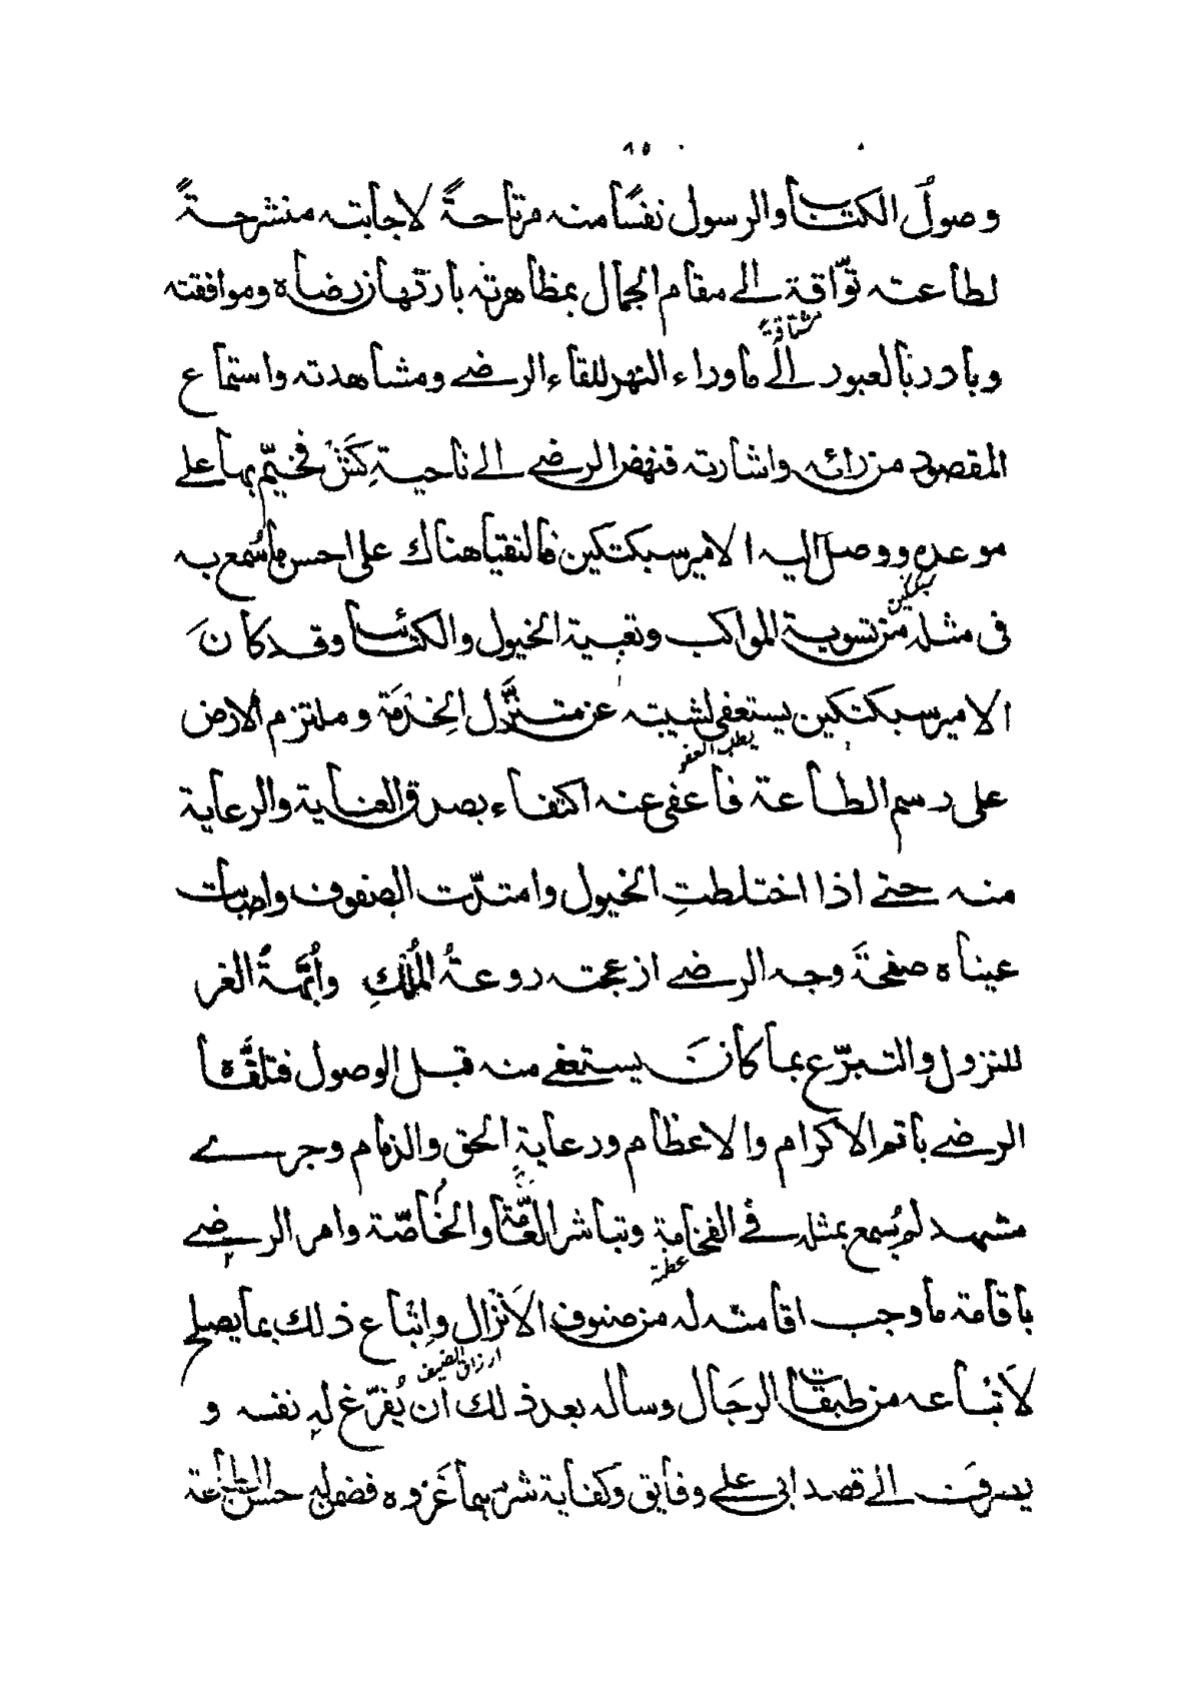 ٦٥
وصولَ الكتاب والرسول نفسًا منه مرتاحةً لاجابته منشرحةً
لطاعته توّاقة الى مقام الجمال بمظاهرته بارتهان رضاه وموافقته
مشتاقة
وبادر بالعبور الى ماوراء النهر للقاء الرضى ومشاهدته واستماع
المقصود من رائه واشارته فنهض الرضى الى ناحية كِشّ فخيّم بها على
موعده ووصل اليه الامير سبكتكين فالتقيا هناك على احسن ما سُمع به
سبكتكين
فى مثله من تسوية المواكب وتعبية الخيول والكتائب وقد كانَ
الامير سبكتكين يستعفى لشيبته عن متنزَّل الخِدْمَة وملتزم الارض
يطلب العفو
على رسم الطاعة فاعفى عنه اكتفاء بصدق العناية والرعاية
منه حتى اذا اختلطتِ الخيول وامتدّت الصفوف واصابت
عيناه صفحةَ وجه الرضى ازعجته روعةُ المُلْكِ وأُبّهةُ العز
للنزول والتبرّع بما كانَ يستعفى منه قبل الوصول فتلقَّاه
الرضى باتم الاكرام والاعظام ورعاية الحق والذمام وجرى
مشهد لم يُسمع بمثله فى الفخامة وتباشر العَامّة والخاصّة وامر الرضى
عظمة
باقامة ما وجب اقامته له من صنوف الاَنْزال واِتْباع ذلك بما يصلح
ارزاق الضيف
لاَتْباعه من طبقات الرجَال وساله بعد ذلك ان يُفرّغ له نفسه و
يصرفَ الى قصد ابى على وفايق وكفاية شرهما غزوه فضمن له حسن الطاعة